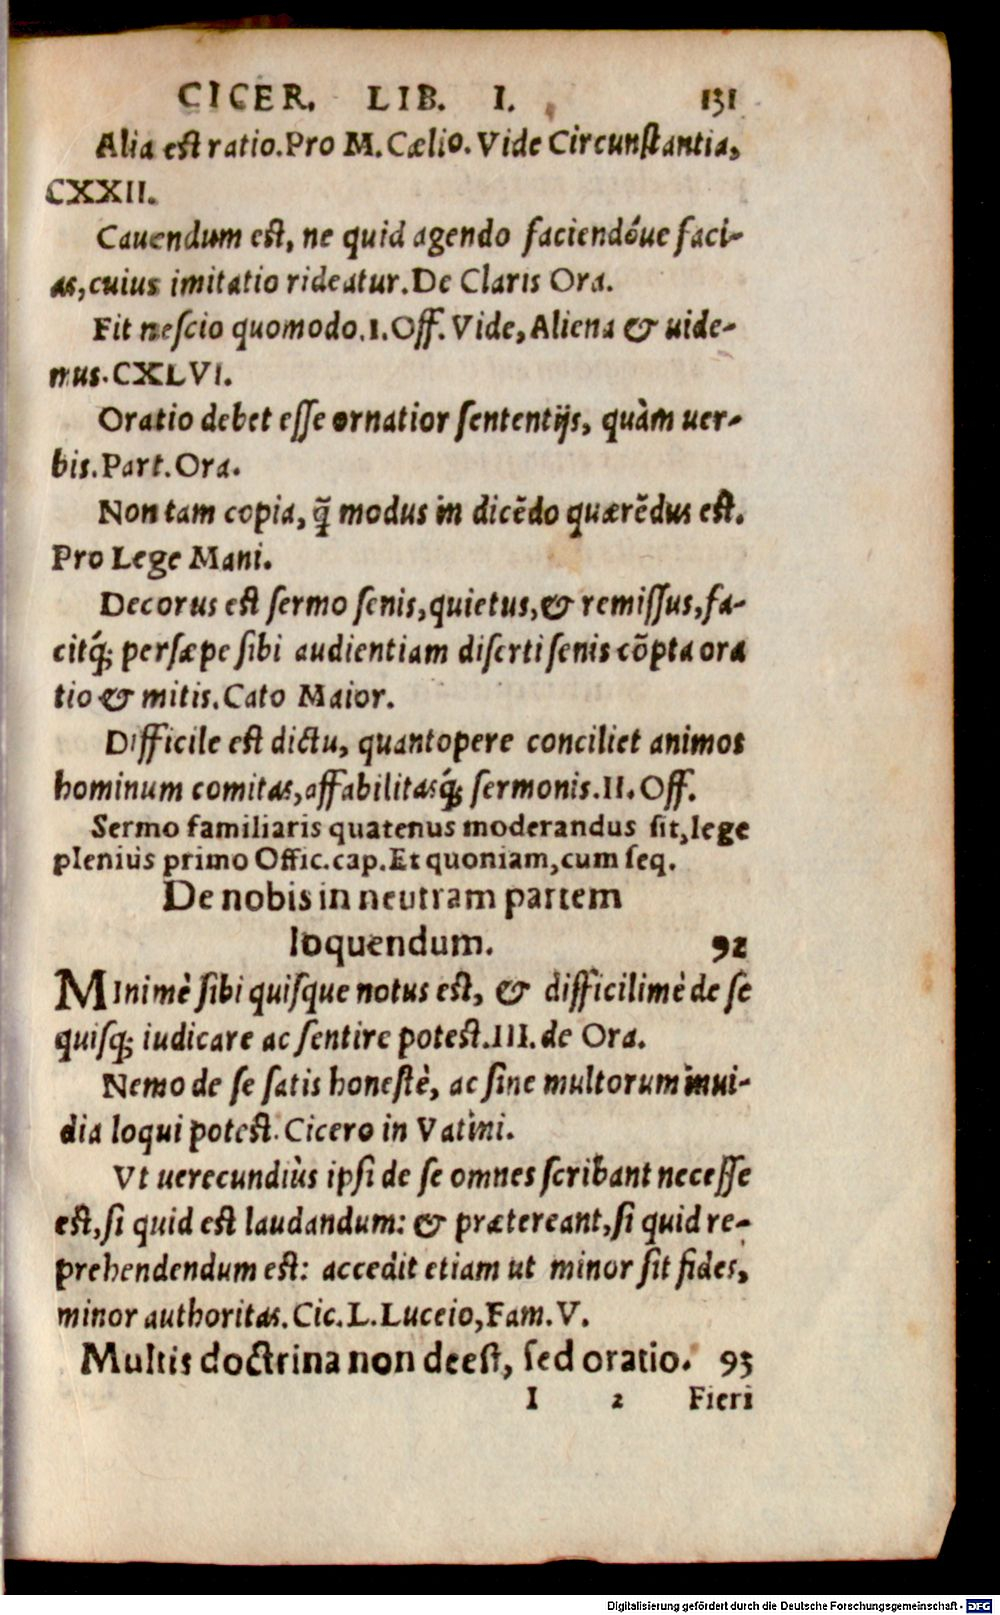 CICER. LIB. I. 131
Alia est ratio. Pro M. Cælio. Vide Circunstantia,
CXXII.
Cauendum est, ne quid agendo faciendóue faci-
as, cuius imitatio rideatur. De Claris Ora.
Fit nescio quomodo. I. Off. Vide, Aliena & uide-
mus. CXLVI.
Oratio debet esse ornatior sententijs, quàm uer-
bis. Part. Ora.
Non tam copia, q̃ modus in dicẽdo quærẽdus est.
Pro Lege Mani.
Decorus est sermo senis, quietus, & remissus, fa-
citq́; persæpe sibi audientiam diserti senis cõpta ora
tio & mitis. Cato Maior.
Difficile est dictu, quantopere conciliet animos
hominum comitas, affabilitasq́; sermonis. II. Off.
Sermo familiaris quatenus moderandus sit, lege
plenius primo Offic. cap. Et quoniam, cum seq.
De nobis in neutram partem
loquendum. 92
MInimè sibi quisque notus est, & difficilimè de se
quisq; iudicare ac sentire potest. III. de Ora.
Nemo de se satis honestè, ac sine multorum inui-
dia loqui potest. Cicero in Vatini.
Vt uerecundiùs ipsi de se omnes scribant necesse
est, si quid est laudandum: & prætereant, si quid re-
prehendendum est: accedit etiam ut minor sit fides,
minor authoritas. Cic. L. Luceio, Fam. V.
Multis doctrina non deest, sed oratio. 93
I 2 Fieri
Digitalisierung gefördert durch die Deutsche Forschungsgemeinschaft - DFG